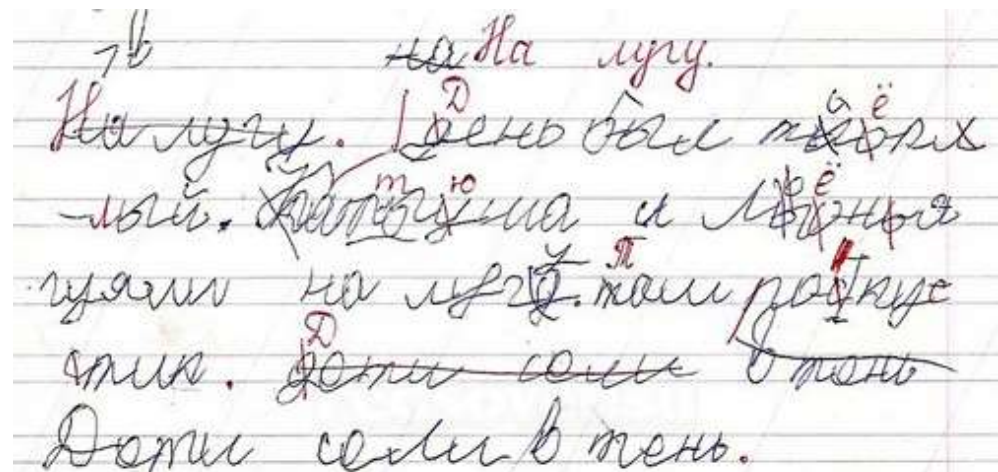 на На лугу.
На лугу. День был тёпл
лый. Катюша и Лёня
гуляли на лугу. Там рос кус
тик. Дети сели в тень
Дети сели в тень.